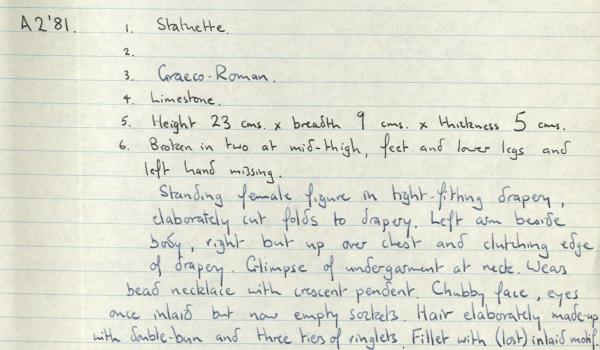 A2'81. 1. Statuette.
2.
3. Graeco-Roman.
4. Limestone.
5. Height 23 cms. x breadth 9 cms. x thickness 5 cms.
6. Broken in two at mid-thigh, feet and lower legs and
left hand missing.
Standing female figure in tight-fitting drapery,
elaborately cut folds to drapery. Left arm beside
body, right but up over chest and clutching edge
of drapery. Glimpse of undergarment at neck. Wears
bead necklace with crescent pendent. Chubby face, eyes
once inlaid but now empty sockets. Hair elaborately made-up
with double-bun and three tiers of ringlets. Fillet with (lost) inlaid motif.